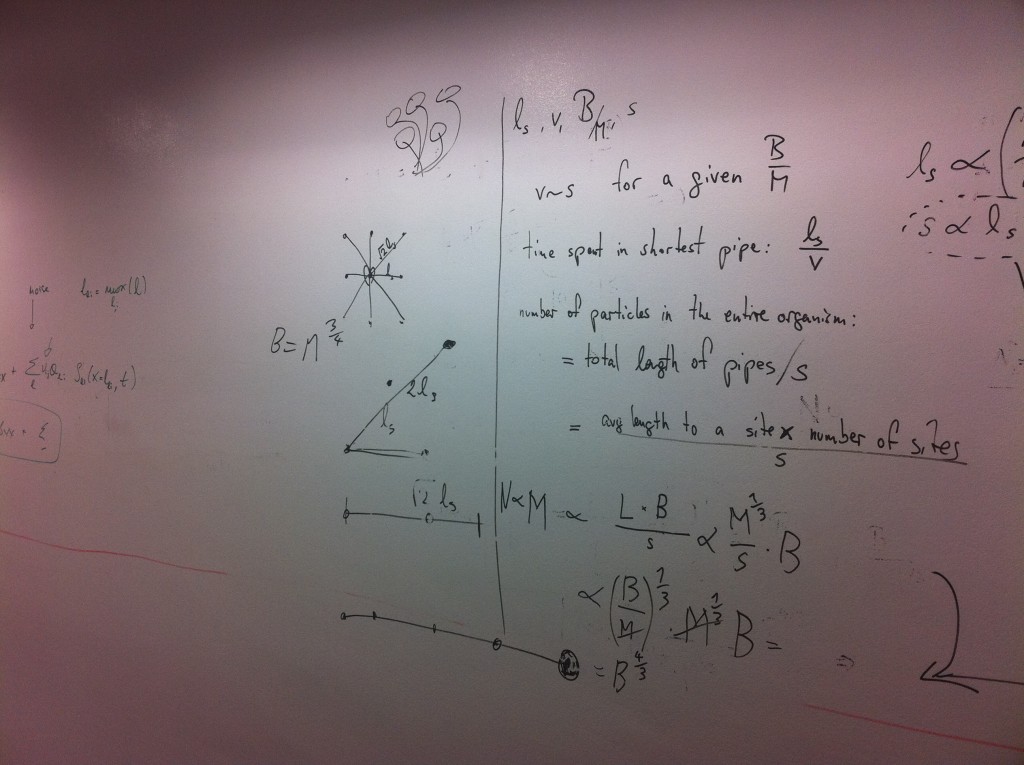 l_s, v, B/M, s
v~s for a given B/M
time spent in shortest pipe: l_s/v
number of particles in the entire organism:
= total length of pipes/s
= avg length to a site × number of sites / s
N∝M ∝ L·B/s ∝ M^{1/3}/s · B
∝ (B/M)^{1/3} · M^{1/3} B =
= B^{4/3}
⇒
l_s ∝ (
s ∝ l_s
√2 l_s
l_s
B = M^{3/4}
2l_s
l_s
√2 l_s